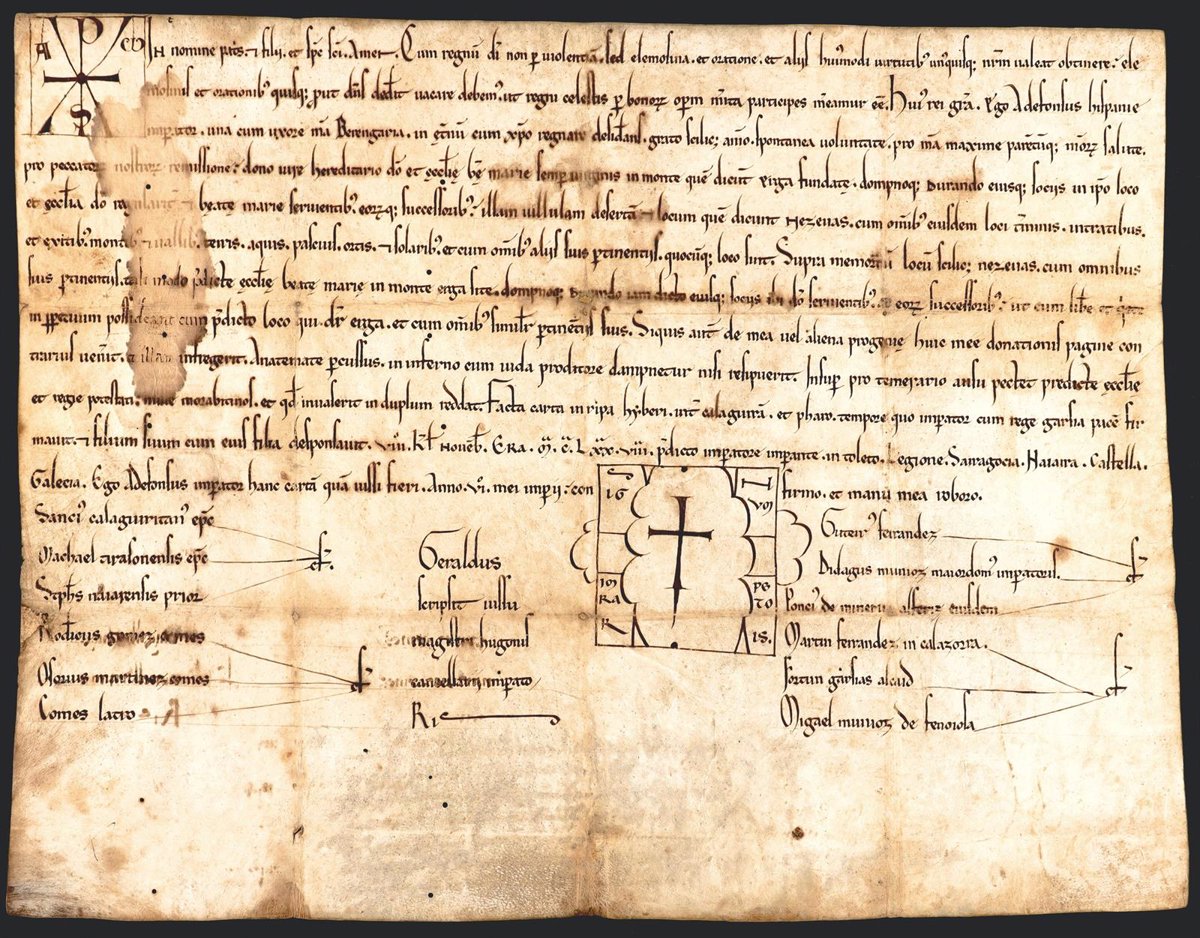 A P ω
IN nomine pat̄s. ⁊ filii. et sp̄c sc̄i. Amen. Cum regnū dī non p̱ violentiā. sed elemosina. et oratione. et aliis huiusmodi virtutib; unusquisq; nr̄m valeat obtinere; ele
mosinis et orationib; quisq; put dn̄s dederit vacare debem;. ut regni celestis p̱ bonorꝫ opm̄ mīta participes inueniamur eē. Hui; rei grā. Ego Adefonsus hispanie
imperator. una cum uxore mā Berengaria. in et̄nū cum xp̄o regnare desidans. grato scilic; aīo. spontanea voluntate. pro mā maxime parētūq; mōrꝫ salute.
pro peccatorꝫ nostrorꝫ remissione; dono iure hereditario dō et ęcclę bē marie semp uirginis in monte quē dicūt Erga fundate. dompnoq; Durando eiusq; sociis in ip̄o loco
et ęcclīa dō regularit̄ ⁊ beatę marie servientib;. eorꝫq; successorib;; illam uillulam desertā ⁊ locum quē dicunt Nezeuas. cum omīb; eiusdem loci t̄minis. intratibus.
et exitib;. montib; ⁊ uallib;. terris. aquis. pascuis. ortis. ⁊ solarib;. et cum omīb; aliis suis p̱tinentiis. quocūq; loco sint. Supra memoratū locū scilic; nezeuas. cum omnibus
suis p̱tinentiis. tali modo p̄dicte ęcclīe beatę marię in monte erga site. dompnoq; Durando iam dicto eiusq; sociis ibi dō servientib;. et eorꝫ successorib;; ut cum libē et
in p̱petuum possideant cum p̄dicto loco qui dr̄ erga. et cum omīb; simil̄r p̱tinentiis suis. Siquis aut̄ de mea vel aliena progenie huic mee donationis pagine con
trarius uen̄it. ⁊ illam infregerit. Anatemate p̱cussus. in inferno cum iuda proditore dampnetur nisi resipuerit. Insup̱ pro temerario ausu pectet predicte ęcclīe
et regie potestati. mille morabitinos. et qd̄ inuaserit in duplum reddat. Facta carta in ripa hyberi. int̄ calagurrā. et pharo. tempore quo imp̱ator cum rege garsia pacē fir
mauit. ⁊ filium suum cum eius filia desponsauit. viii. kl̄ Nouēb̄. ERA. M̄. C̄. LXX.VIII. p̄dicto imp̱atore imp̱ante. in toleto. Legione. Saragocia. Naiara. Castella.
Galecia. Ego Adefonsus imp̱ator hanc cartā quā iussi fieri. Anno. vi. mei imp̱ii; con firmo. et manu mea roboro.
SIG I VM
IM RA PE TO
R IS.
Sanci; calaguritan; ep̄c
Michael tirasonensis ep̄c
Stphs naiarensis prior
Rodericus gomez comes
Osorius martinez comes
Comes latro
Geraldus
scripsit iussu
magistri hugonis
cancellarii imp̱ato
RIS
Guterr; ferrandez
Didagus munioz maiordom; imp̱atoris.
Ponci; de minerua alferiz eiusdem
Martin ferrandez in calagorra.
Fortun garsias alcaid
Migael munioz de fenoiola